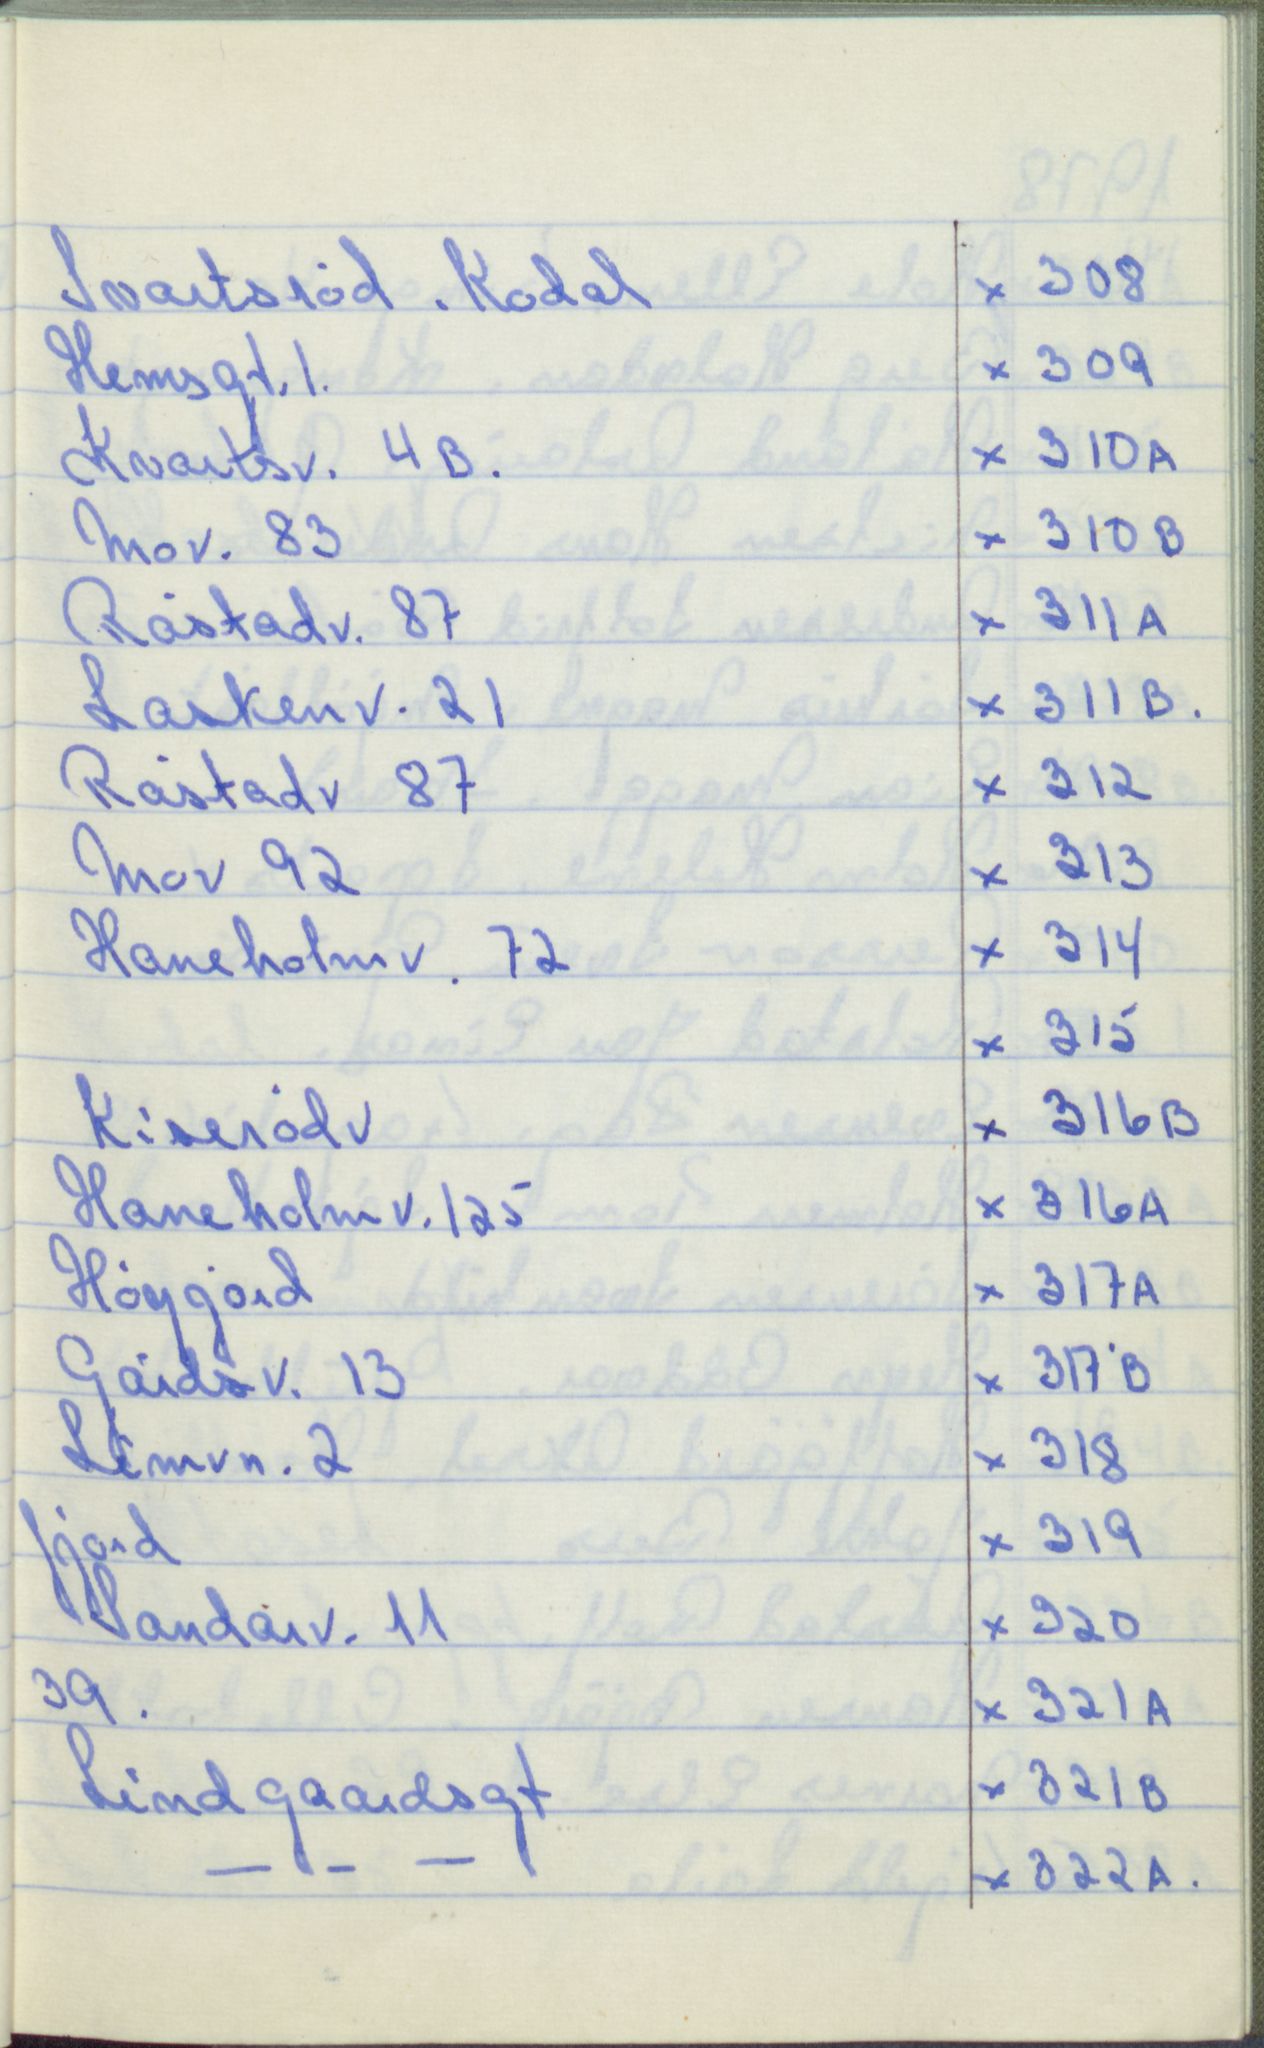 Svartsrød. Kodal x 308
Hemsgt. 1. x 309
Kvartsv. 4B. x 310A
Mov. 83 x 310B
Råstadv. 87 x 311A
Laskenv. 21 x 311B.
Råstadv 87 x 312
Mov 92 x 313
Haneholmv. 72 x 314
x 315
Kiserødv x 316B
Haneholmv. 125 x 316A
Høyjord x 317A
Gårdsv. 13 x 317B
Limvn. 2 x 318
fjord x 319
Sandarv. 11 x 320
39. x 321A
Lindgaardsgt x 321B
— — — x 322A.